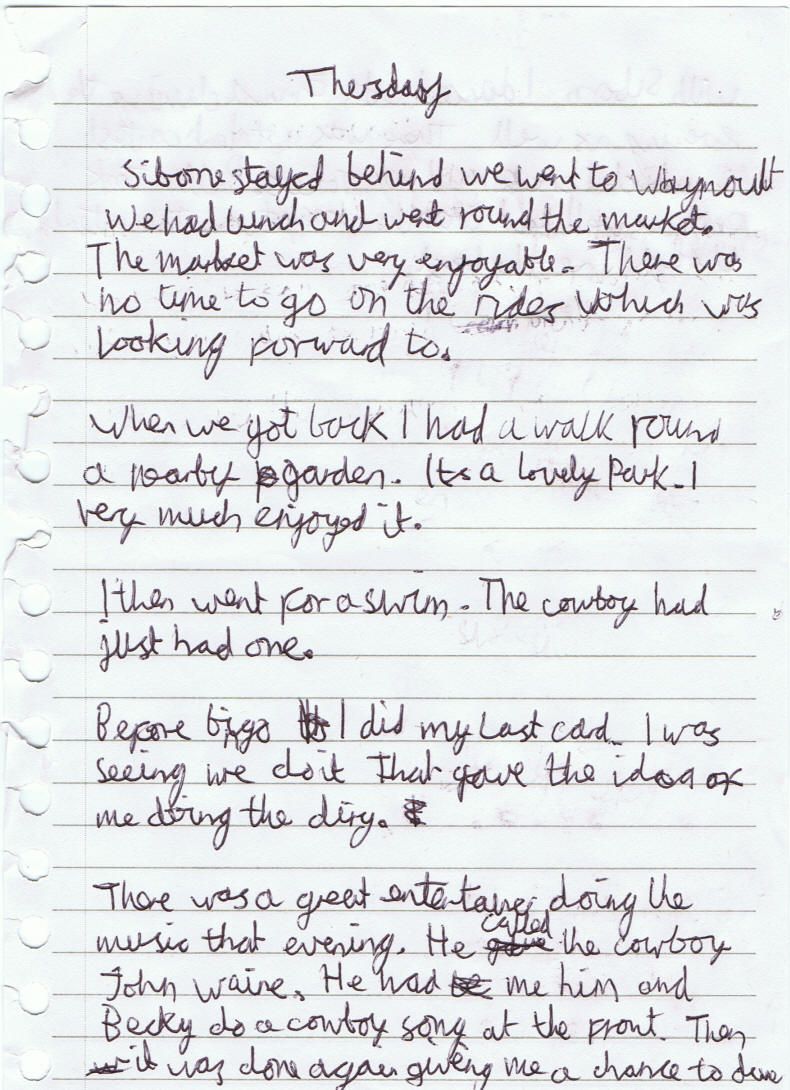 Thersday
Siborne stayed behind we went to Waymoult
We had lunch and went round the market.
The market was very enjoyable. There was
no time to go on the rides which was
looking forward to.
When we got back I had a walk round
a nearby garden. Its a lovely Park. I
very much enjoyed it.
I then went for a swim. The cowboy had
just had one.
Before bingo I did my last card. I was
seeing me do it That gave the idea of
me doing the diry.
There was a great entertainer doing the
music that evening. He called the cowboy
John waine. He had me him and
Becky do a cowboy song at the front. Then
it was done again giving me a chance to